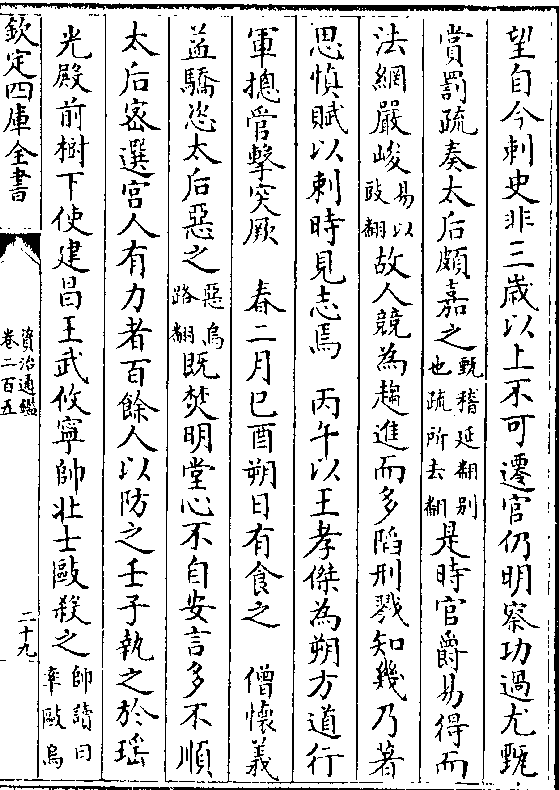 望自今刺史非三歲以上不可遷官仍明察功過尤甄
賞罰疏奏太后頗嘉之甄稽延翻别也疏所去翻是時官爵易得而
法網嚴峻易以豉翻故人競為趨進而多陷刑戮知幾乃著
思慎賦以刺時見志焉　丙午以王孝傑為朔方道行
軍摠管擊突厥　春二月己酉朔日有食之　僧懷義
益驕恣太后惡之惡烏路翻既焚明堂心不自安言多不順
太后宻選宮人有力者百餘人以防之壬子執之於瑶
光殿前樹下使建昌王武攸寧帥壯士毆殺之帥讀曰率毆烏
欽定四庫全書
資治通鑑
卷二百五
二十九